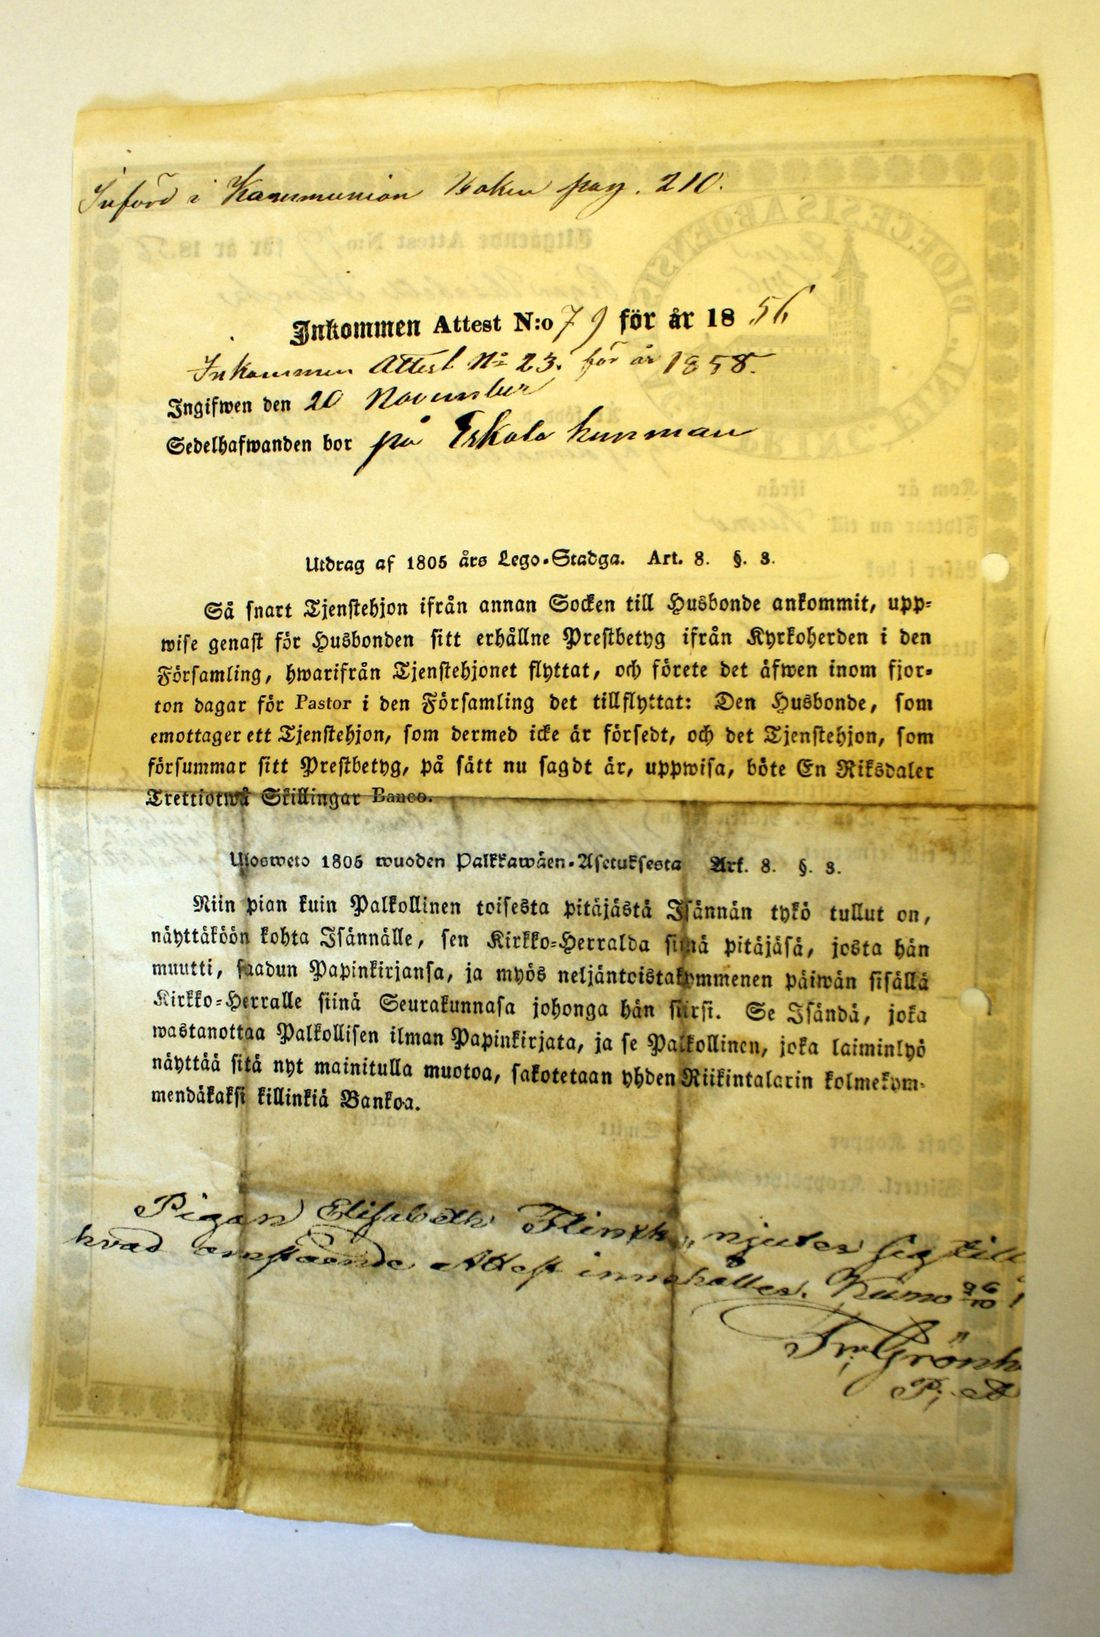 Införd i Kommunion Boken pag. 210.
Inkommen Attest N:o 79 för år 1856
Inkommen Attest No 23. för år 1858.
Ingifwen den 20 November
Sedelhafwanden bor på Eskola hemman
Utdrag af 1805 års Lego-Stadga. Art. 8. §. 3.
Så snart Tjenstehjon ifrån annan Socken till Husbonde ankommit, upp-
wise genast för Husbonden sitt erhållne Prestbetyg ifrån Kyrkoherden i den
Församling, hwarifrån Tjenstehjonet flyttat, och förete det äfwen inom fjor-
ton dagar för Pastor i den Församling det tillflyttat: Den Husbonde, som
emottager ett Tjenstehjon, som dermed icke är försedt, och det Tjenstehjon, som
försummar sitt Prestbetyg, på sätt nu sagdt är, uppwisa, böte En Riksdaler
Trettiotwå Skillingar Banco.
Ulosweto 1805 wuoden Palkkawäen-Asetuksesta Art. 8. §. 3.
Niin pian kuin Palkollinen toisesta pitäjästä Isännän tykö tullut on,
näyttäköön kohta Isännälle, sen Kirkko-Herralda siinä pitäjäsä, josta hän
muutti, saadun Papinkirjansa, ja myös neljäntoistakymmenen päiwän sisällä
Kirkko-Herralle siinä Seurakunnasa johonga hän siirsi. Se Isändä, joka
wastanottaa Palkollisen ilman Papinkirjata, ja se Palkollinen, joka laiminlyö
näyttää sitä nyt mainitulla muotoa, sakotetaan yhden Riikintalarin kolmekym-
mendäkaksi killinkiä Bankoa.
Pigan Elisabeth Flinck, njuter sig till
hvad omstående Attest innehåller. Kumo 26/10
Fr. Grönh
P. A